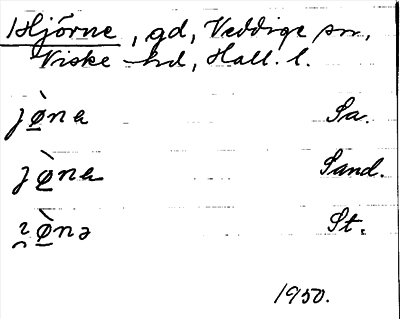 Hjörne, gd, Veddige sn,
Viske hd, Hall. l.
jø̠̀na Sa.
jø̠̀na Sand.
ø̠̀nə St.
1950.